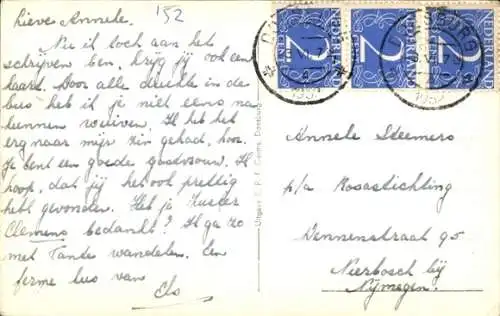 Lieve Annele.
'52
Nu ik toch aan het
schrijven ben, krijg jij ook een
kaart. Door alle drukte in de
bus heb ik je niet eens na
kunnen wuiven. Ik heb het
erg naar mijn zin gehad, hoor.
Je bent een goede gastvrouw. Ik
hoop, dat jij het ook prettig
hebt gevonden. Heb je Zuster
Clemens bedankt? Ik ga zo
met Tante wandelen. Een
ferme bus van
Els
NEDERLAND
2
CENT
NEDERLAND
2
NEDERLAND
2
Annele Steemers
p/a Rosastichting
Dennenstraat 95
Neerbosch bij
Nijmegen.